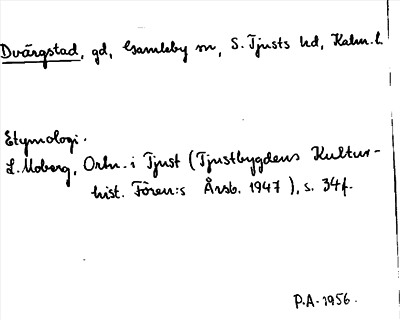 Dvärgstad, gd, Gamleby sn, S. Tjusts hd, Kalm. l.
Etymologi.
L. Moberg, Ortn. i Tjust (Tjustbygdens Kultur-
hist. Fören:s Årsb. 1947), s. 34f.
P.A. 1956.